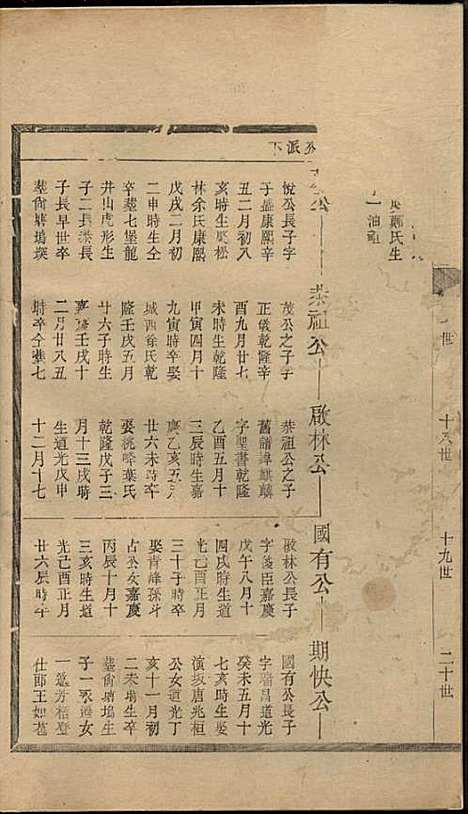 世
十八世
十九世
二十世
鄭氏生
一油祖
派下
公
恭祖公
啟林公
國有公
期快公
悅公長子字
于盛康熙辛
丑二月初八
亥時生娶松
林余氏康熙
戊戌二月初
二申時生仝
卒葬七堡龍
井山虎形生
子二長榮長
子長早世卒
葬尚塘塢墳
茂公之子字
正儀乾隆辛
酉九月廿七
未時生乾隆
甲寅四月十
九寅時卒娶
城西徐氏乾
隆壬戌五月
廿六子時生
嘉慶壬戌十
二月廿八丑
時卒仝葬七
恭祖公之子
舊譜諱麒麟
字聖書乾隆
乙酉五月十
三辰時生嘉
慶乙亥五月
廿六未時卒
娶洮峰葉氏
乾隆戊子三
月十三戌時
生道光戊申
十二月十七
啟林公長子
字餞臣嘉慶
戊午八月十
四戌時生道
光己酉正月
三十子時卒
娶青峰孫斗
占公女嘉慶
丙辰十月十
三亥時生道
光己酉正月
廿六辰時卒
國有公長子
字瑞昌道光
癸未五月十
七亥時生娶
演坂唐兆桓
公女道光丁
亥十一月初
二未時生卒
葬尚塘塢生
子一承海女
一適芳梧登
仕郎王如苞